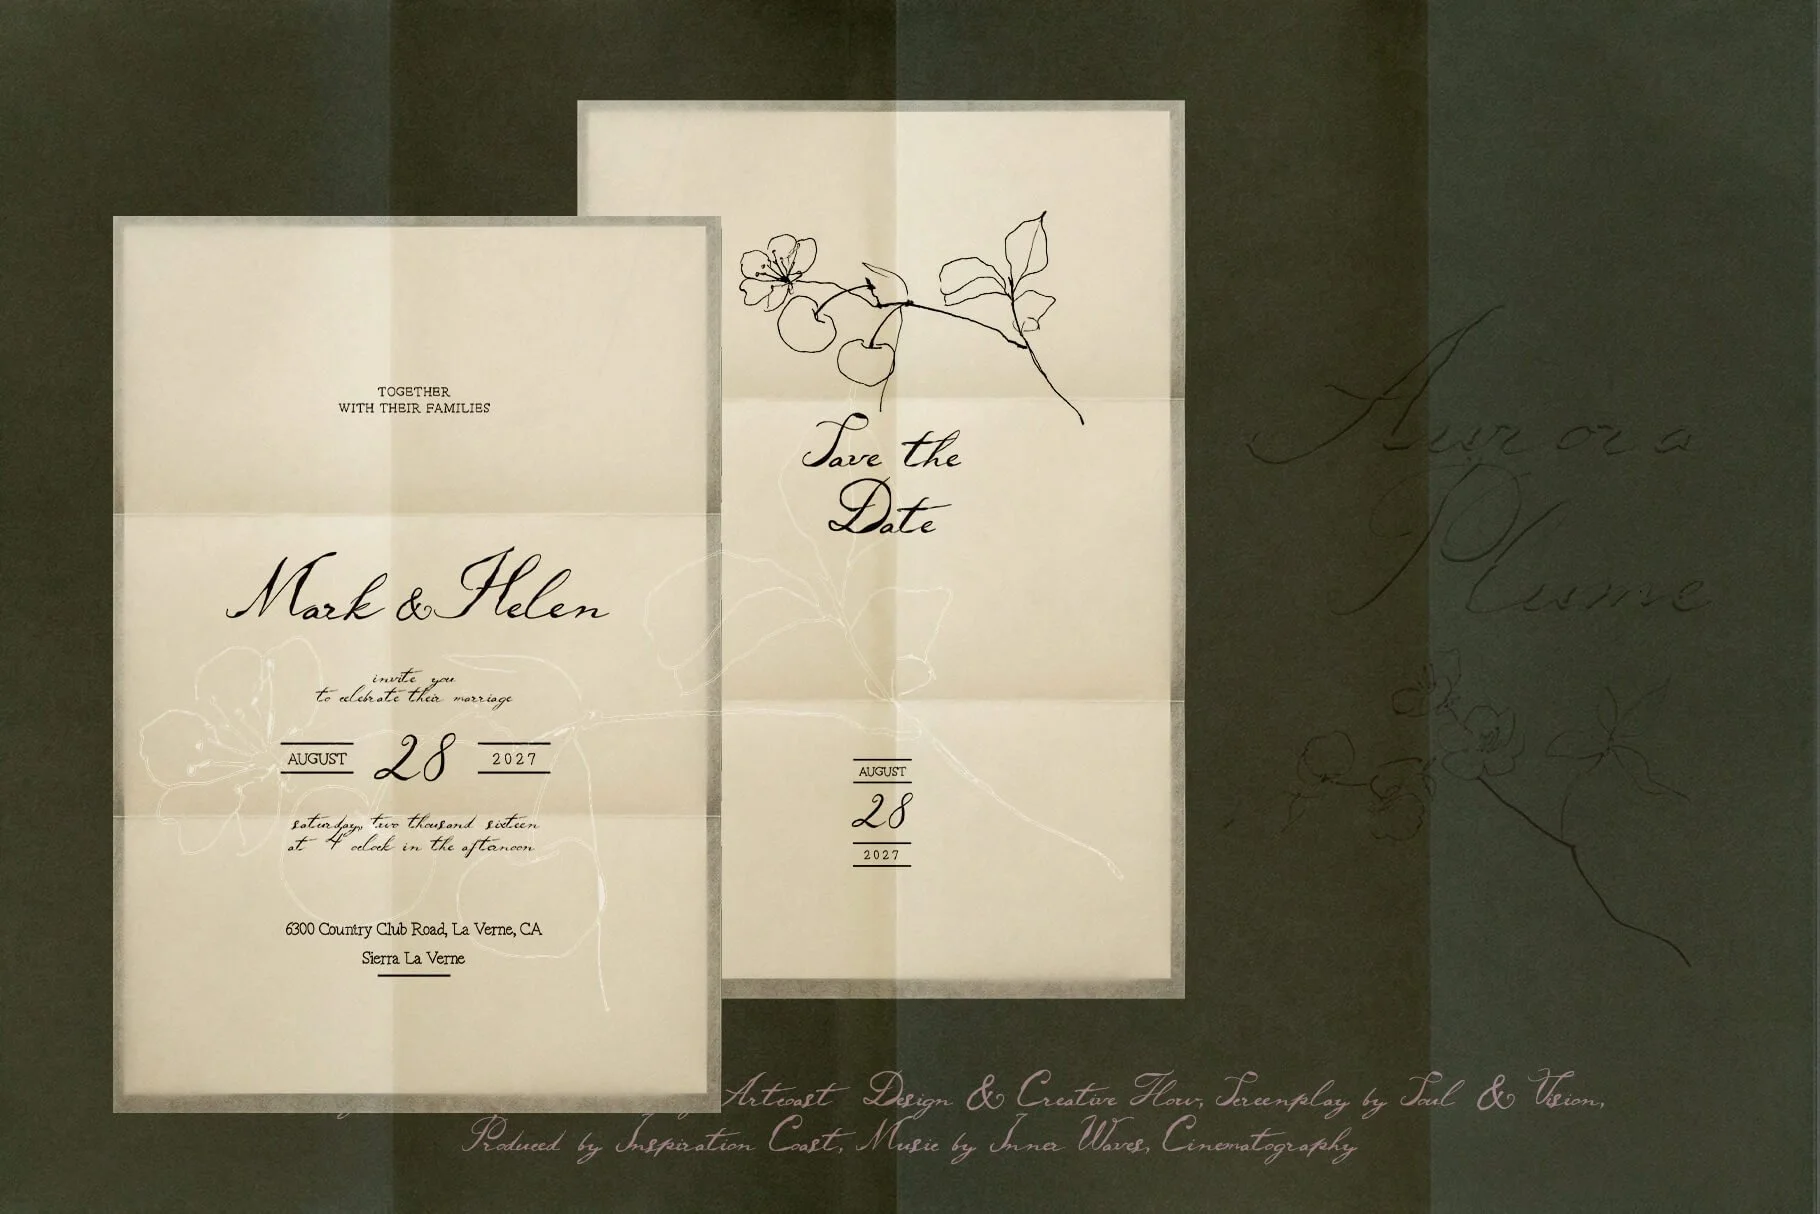 TOGETHER
WITH THEIR FAMILIES
Mark & Helen
invite you
to celebrate their marriage
AUGUST 28 2027
saturday, two thousand sixteen
at 4 oclock in the afternoon
6300 Country Club Road, La Verne, CA
Sierra La Verne
Save the
Date
AUGUST
28
2027
Aurora
Plume
Artcoast Design & Creative Flow, Screenplay by Soul & Vision,
Produced by Inspiration Coast, Music by Inner Waves, Cinematography